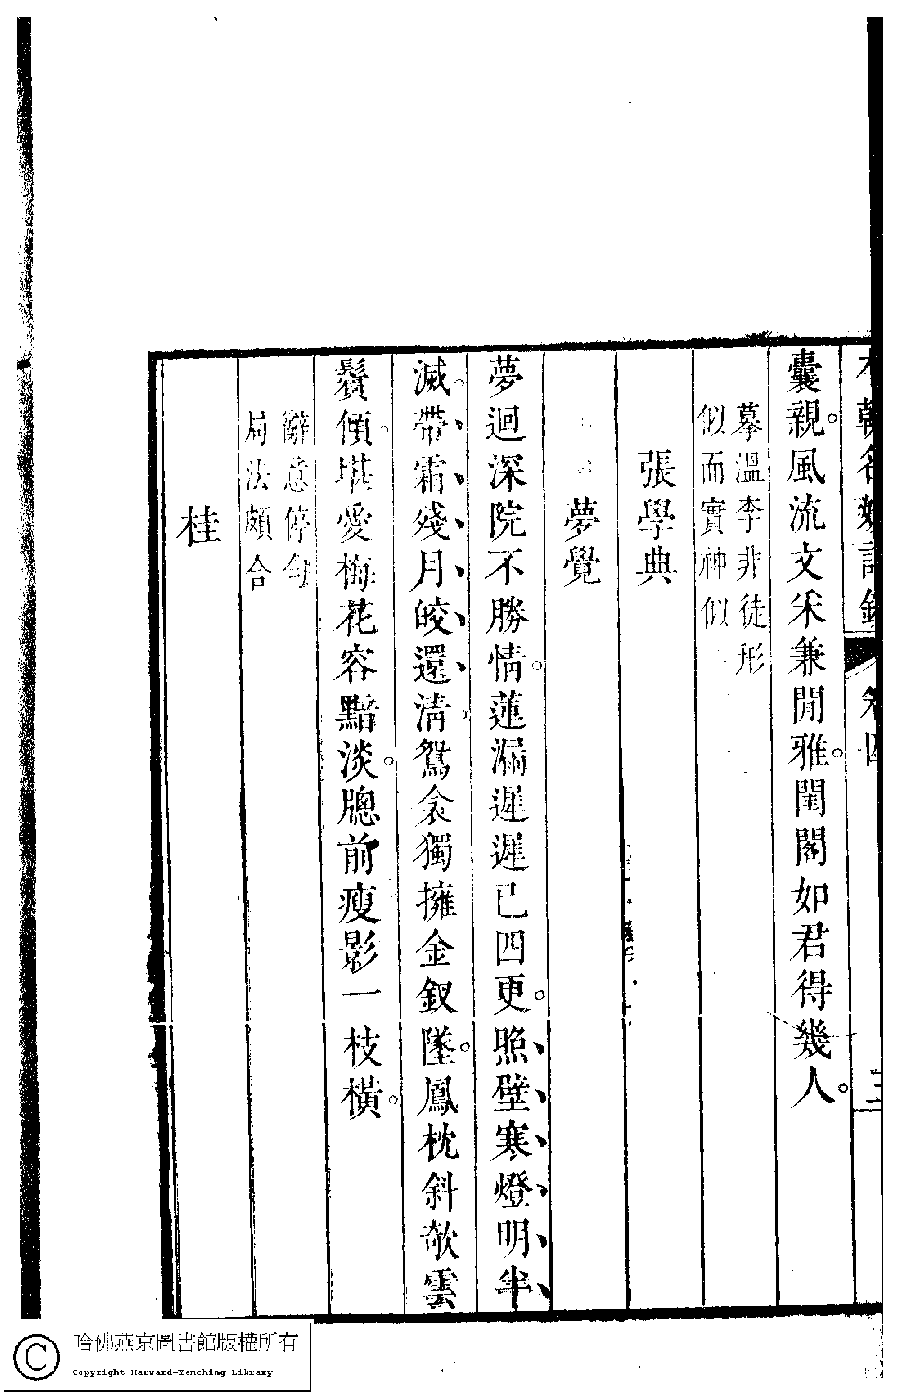 本朝名媛詩鈔 卷四 三
囊親。風流文采兼閒雅。閨閣如君得幾人。
摹溫李非徒形
似而實神似
張學典
夢覺
夢迴深院不勝情。蓮漏遲遲已四更。照壁寒燈明半
滅。帶霜殘月皎還清。鴛衾獨擁金釵墜。鳳枕斜欹雲
鬟傾。堪愛梅花容黯淡。牕前瘦影一枝橫。
辭意停勻
局法頗合
桂
哈佛燕京圖書館版權所有
Copyright Harvard-Yenching Library